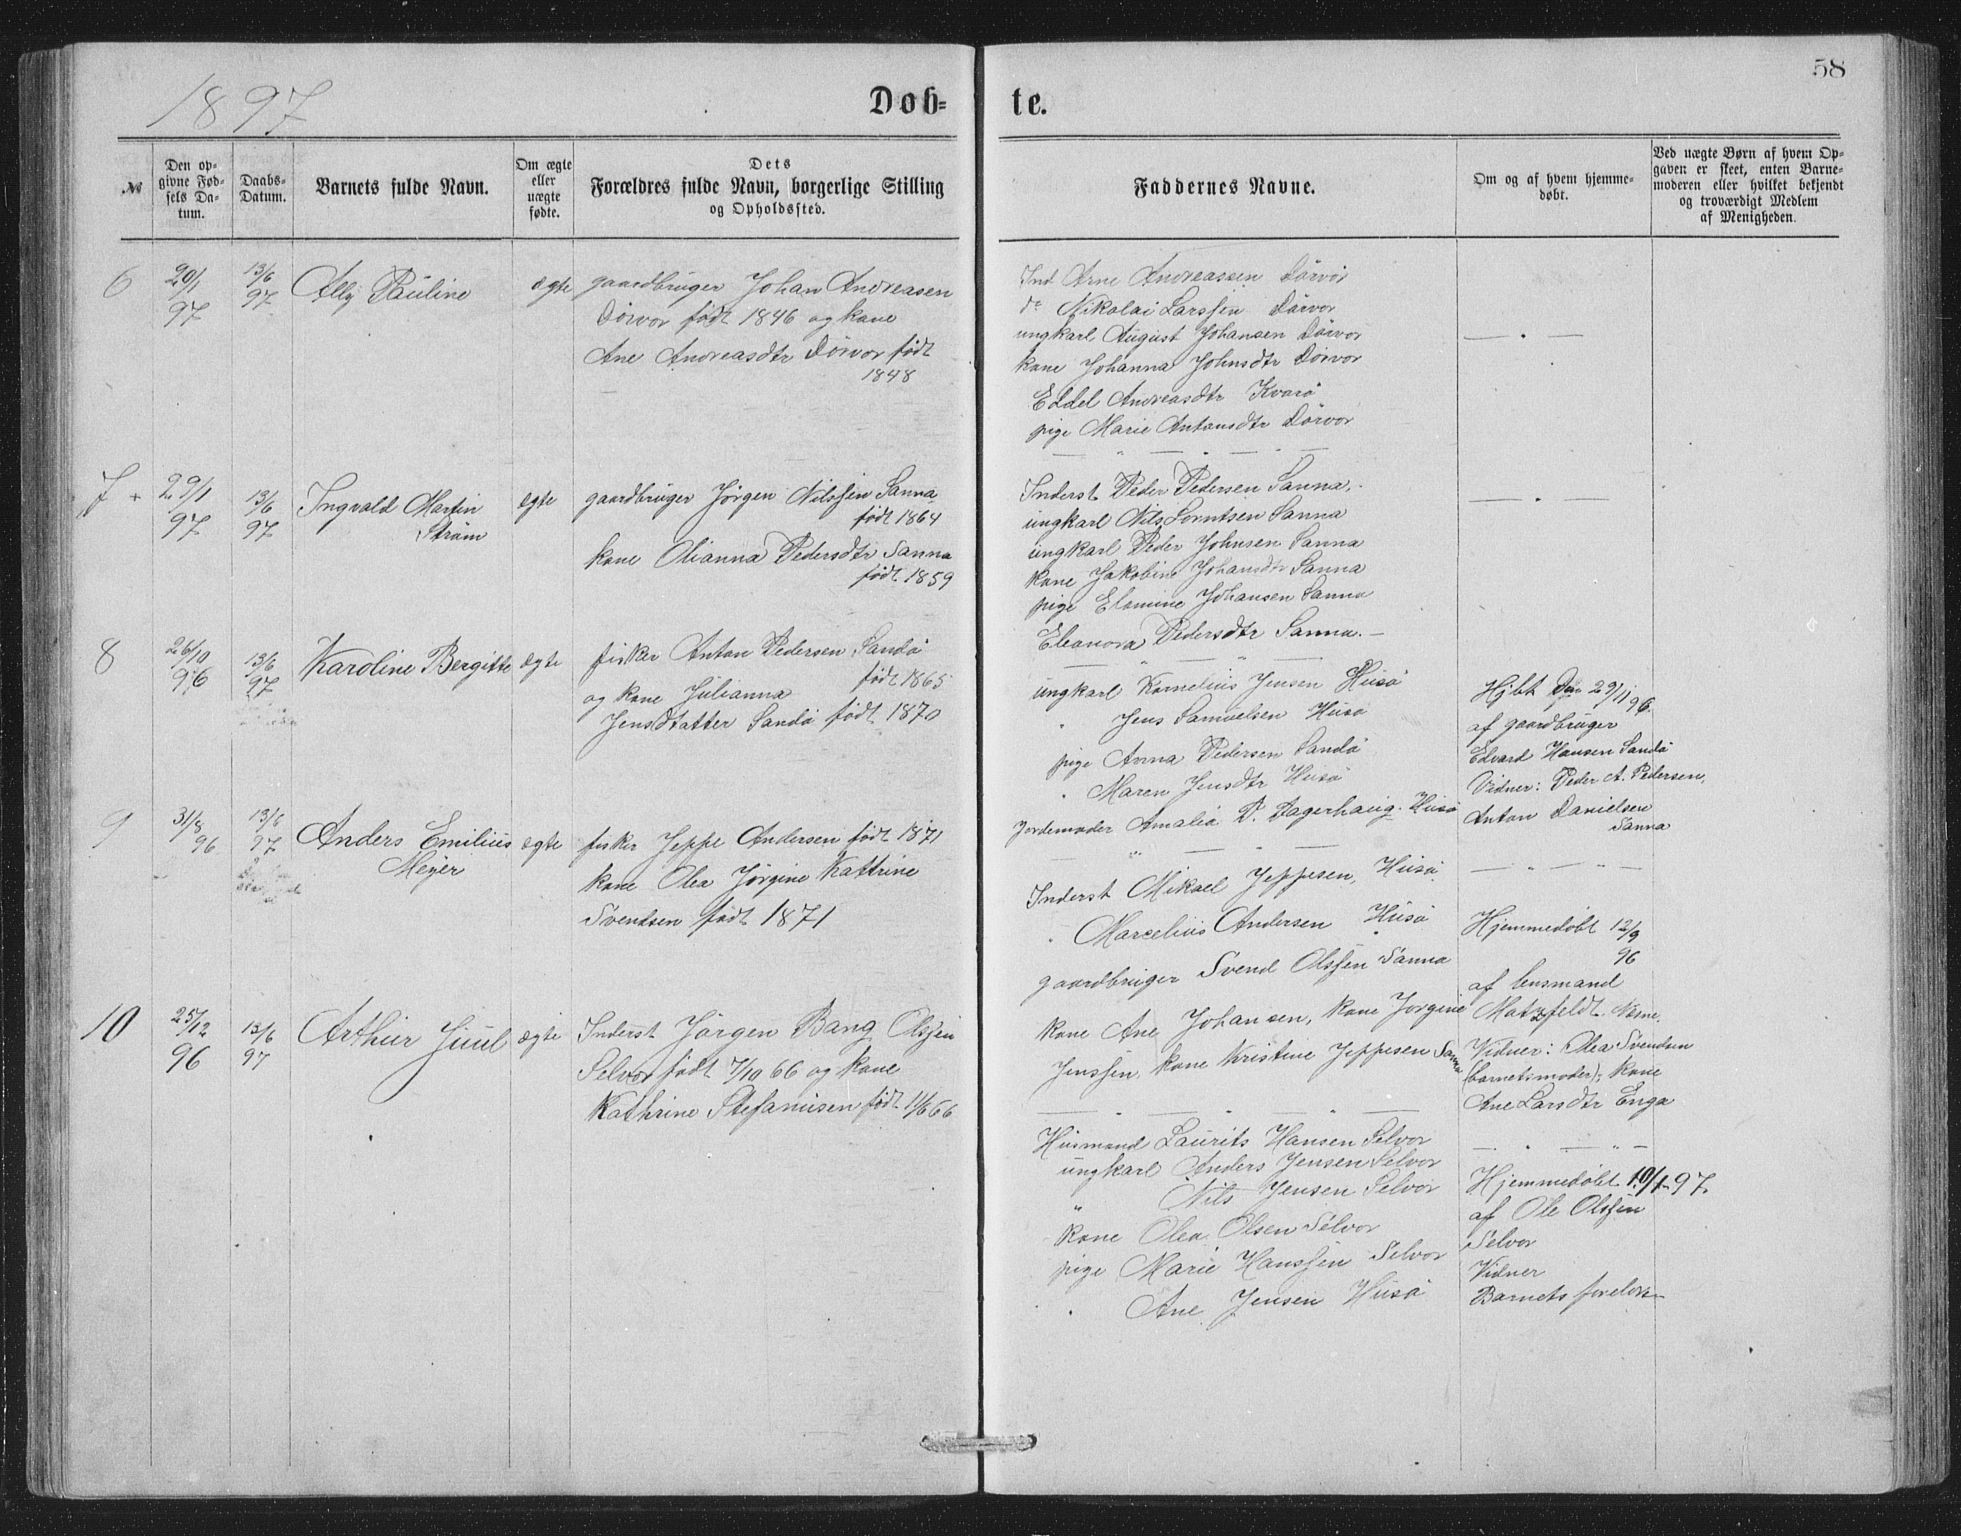 58
1897
Døb-
te.
№
Den op-
givne Fød-
sels Da-
tum.
Daabs-
Datum.
Barnets fulde Navn.
Om ægte
eller
uægte
fødte.
Dets
Forældres fulde Navn, borgerlige Stilling
og Opholdssted.
Faddernes Navne.
Om og af hvem hjemme-
døbt.
Ved uægte Børn af hvem Op-
gaven er skeet, enten Barne-
moderen eller hvilket bekjendt
og troværdigt Medlem
af Menigheden.
6
20/1
97
13/6
97
Ally Pauline
ægte
gaardbruger Johan Andreasen
Dörvor født 1846 og kone
Ane Andreasdtr Dörvor født
1848
Ind Arne Andreassen Dörvör
do Nikolai Larssen Dörvor
ungkarl August Johansen Dörvor
kone Johanna Johnsdtr Dörvor
Eddel Andreasdtr Kvarö
pige Marie Antonsdtr Dörvor
7 +
29/1
97
13/6
97
Ingvald Martin
Ström
ægte
gaardbruger Jörgen Nilssen Sanna
født 1864
kone Olianna Pedersdtr Sanna
født 1859
Inderst Peder Pedersen Sanna.
ungkarl Nils Lorntsen Sanna
ungkarl Peder Johnsen Sanna
kone Jakobine Johansdtr Sanna
pige Elamine Johansen Sanna
Eleanora Pedersdtr Sanna. —
8
26/10
96
13/6
97
Karoline Bergitte
ægte
fisker Anton Pedersen Sandö
født 1865
og kone Julianna
Jensdtatter Sandö født 1870
ungkarl Kornelius Jensen Husö
" Jens Samuelsen Husö
pige Anna Pedersen Sandö
" Maren Jensdtr Husö
Jordemoder Amalia D. Dagerhaug. Husö
Hjbt Den 29/11 96.
af gaardbruger
Edvard Hansen Sandö
Vidner: Peder A. Pedersen,
Anton Danielsen
Sanna
9
31/8
96
13/6
97
Anders Emilius
Meÿer
ægte
fisker Jeppe Andersen født 1871
kone Olea Jørgine Kattrine
Svendsen født 1871
Inderst Mikael Jeppesen, Husö
" Marcelius Andersen Husö
gaardbruger Svend Olssen Sanna
kone Ane Johansen, kone Jorgine
Jenssen, kone Kristine Jeppesen Sanna
Hjemmedöbt 12/9
96
af lensmand
Matzfeldt. Næsne.
Vidner: Olea Svendsen
(barnetsmoder); kone
Ane Larsdtr Enga
10
25/12
96
13/6
97
Arthur Juul
ægte
Inderst Jörgen Bang Olssen
Selvor født 7/10 66 og kone
Kathrine Stefanusen født 11/6 66
Husmand Laurits Hansen Selvor
ungkarl Anders Jensen Selvor
" Nils Jensen Selvor
kone Olea Olsen Selvor
pige Marie Hanssen Selvor
" Ane Jensen Husö
Hjemmedöbt 10/1-97.
af Ole Olssen
Selvor
Vidner
Barnets foreldre